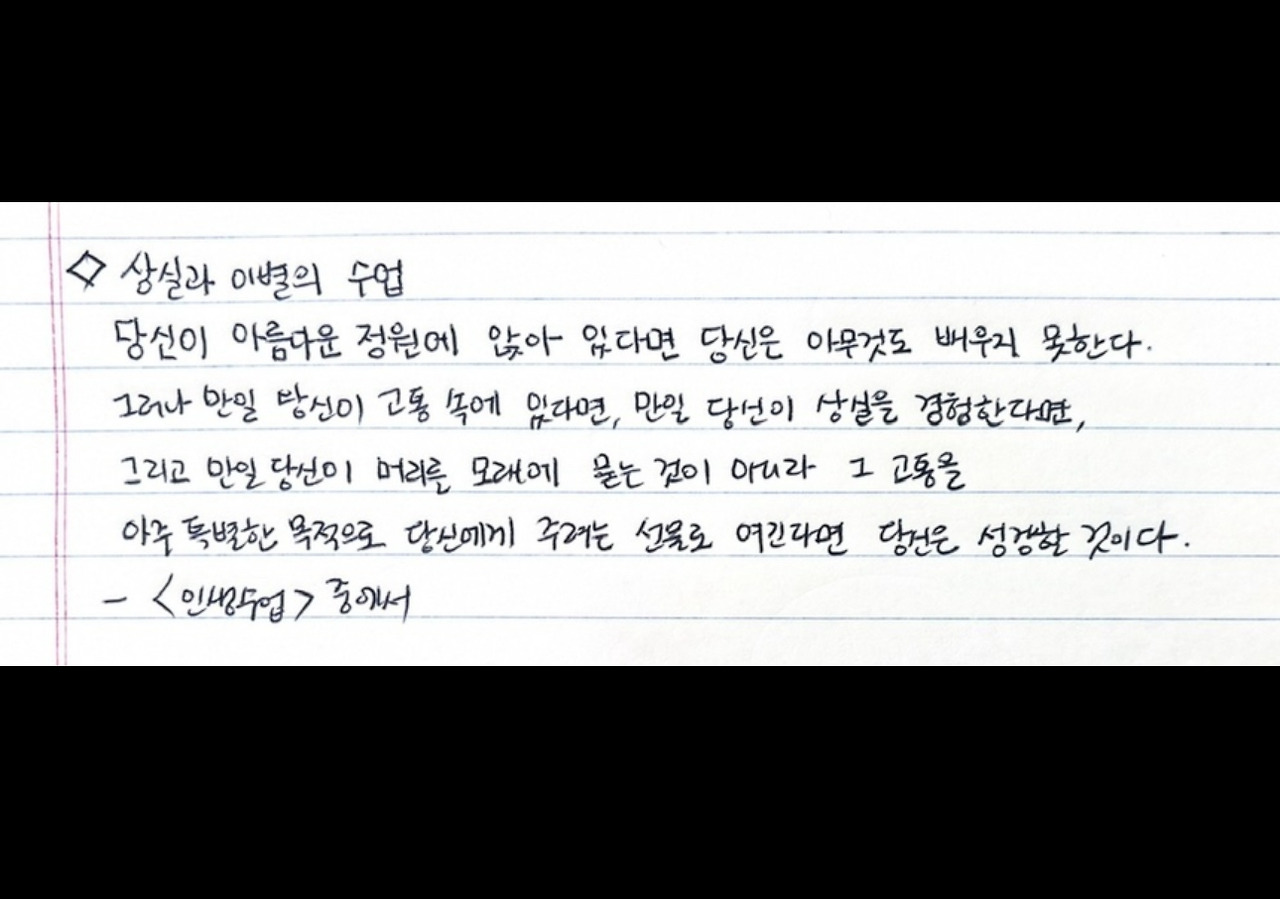 ◇ 상실과 이별의 수업
당신이 아름다운 정원에 앉아 있다면 당신은 아무것도 배우지 못한다.
그러나 만일 당신이 고통 속에 있다면, 만일 당신이 상실을 경험한다면,
그리고 만일 당신이 머리를 모래에 묻는 것이 아니라 그 고통을
아주 특별한 목적으로 당신에게 주려는 선물로 여긴다면 당신은 성장할 것이다.
- <인생수업> 중에서